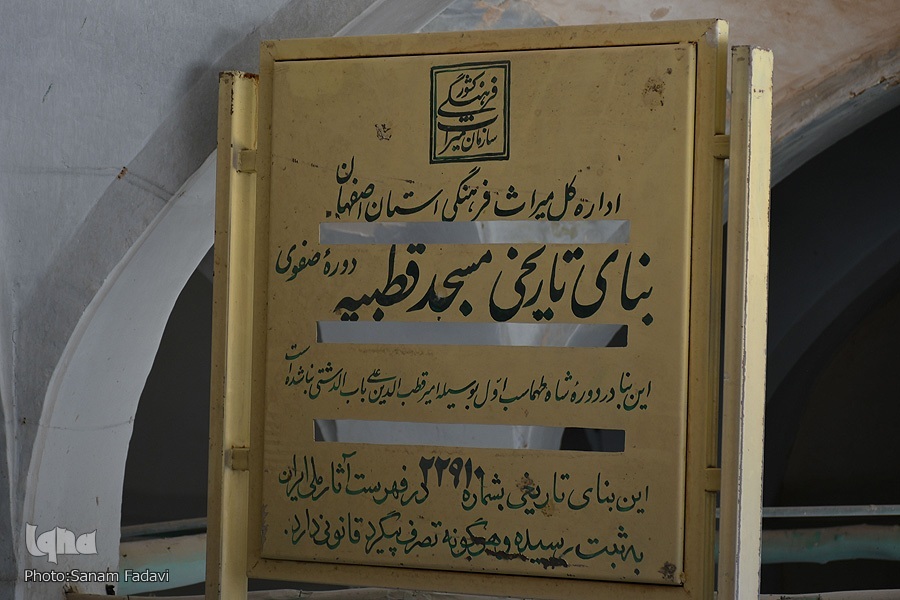 سازمان میراث فرهنگی کشور
اداره کل میراث فرهنگی استان اصفهان
بنای تاریخی مسجد قطبیه دورهٔ صفوی
این بنا در دورهٔ شاه طهماسب اوّل بوسیله امیر قطب الدین علی باب الدشتی بنا شده است
این بنای تاریخی بشماره ۲۲۹۱۰ در فهرست آثار ملی ایران
به ثبت رسیده و هرگونه تصرف پیگرد قانونی دارد.
iqna
Photo:Sanam Fadavi